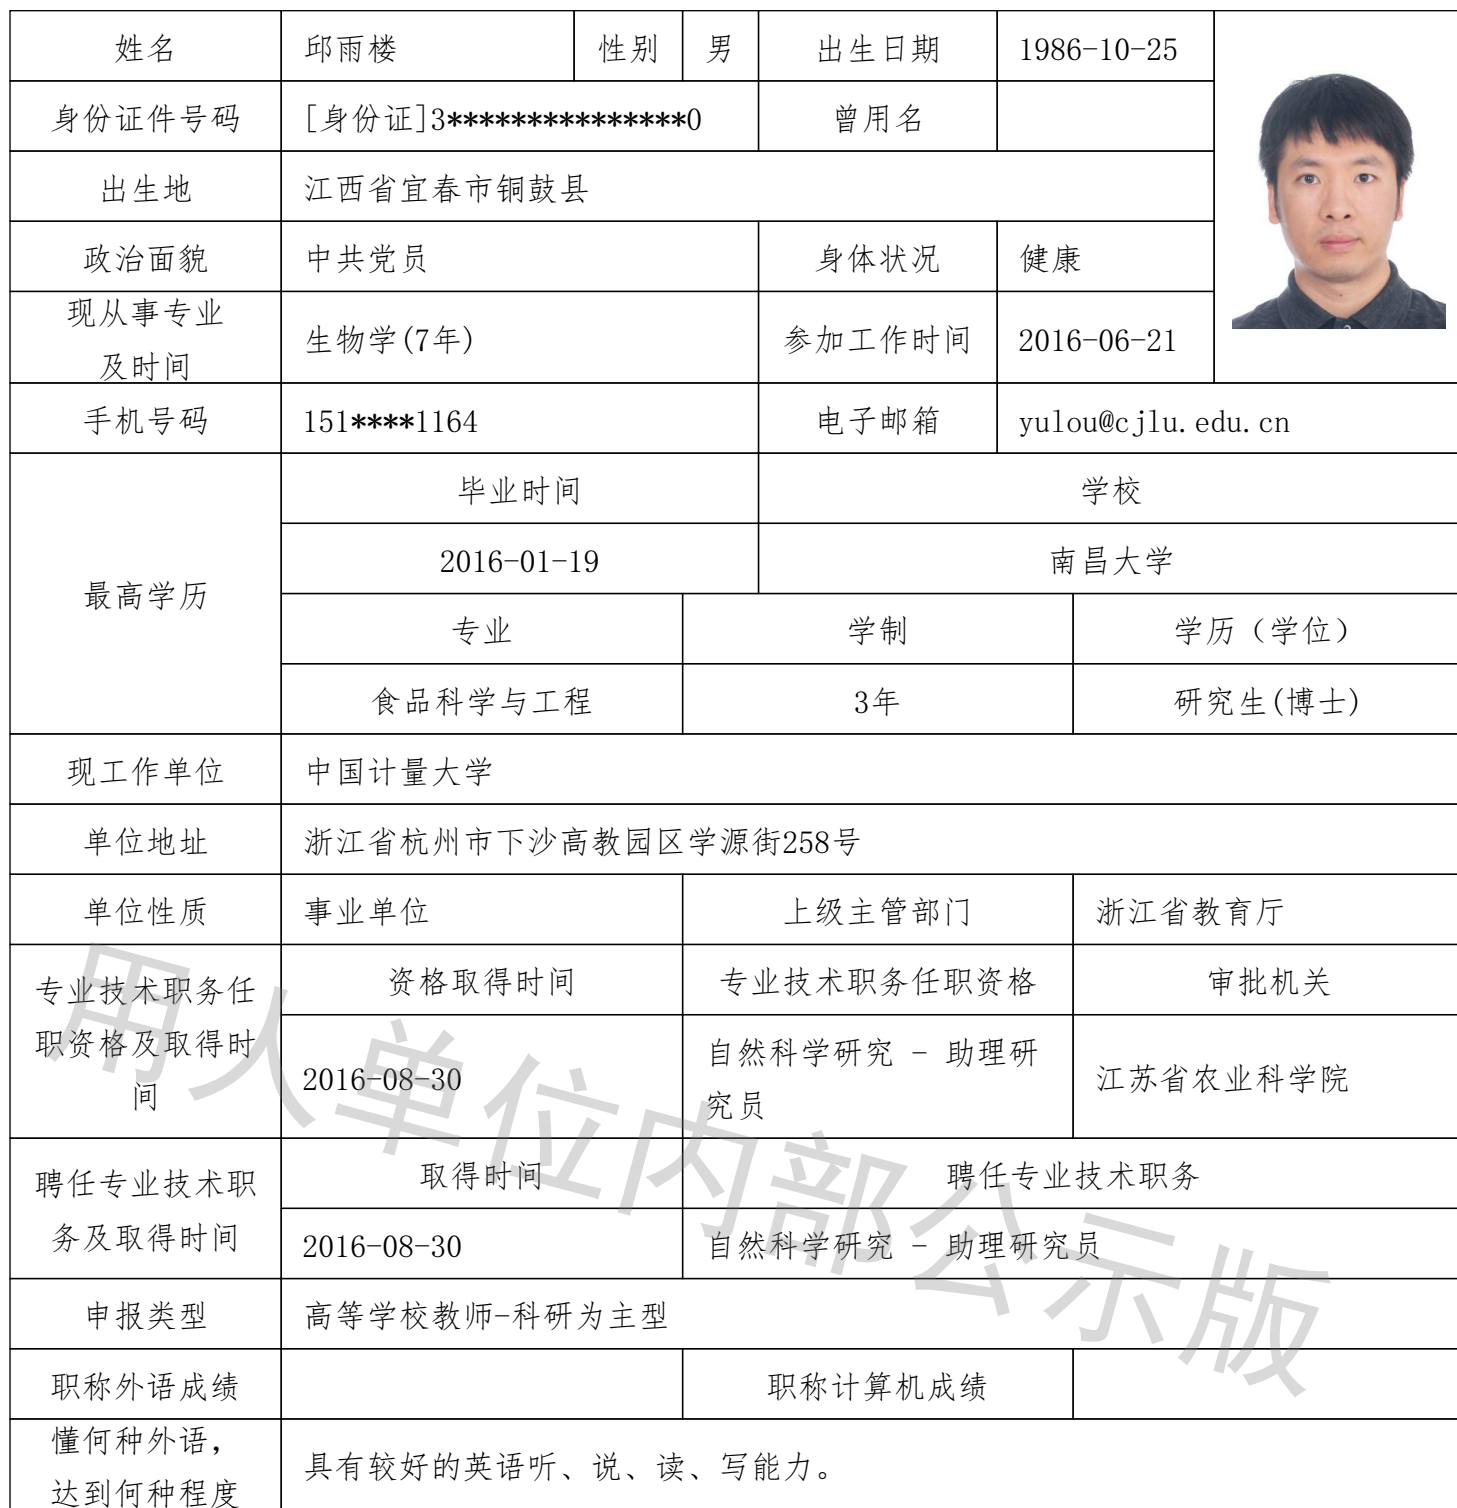 姓名 邱雨楼 性别 男 出生日期 1986-10-25
身份证件号码 [身份证]3***************0 曾用名
出生地 江西省宜春市铜鼓县
政治面貌 中共党员 身体状况 健康
现从事专业
及时间
生物学(7年) 参加工作时间 2016-06-21
手机号码 151****1164 电子邮箱 yulou@cjlu.edu.cn
最高学历
毕业时间 学校
2016-01-19 南昌大学
专业 学制 学历（学位）
食品科学与工程 3年 研究生(博士)
现工作单位 中国计量大学
单位地址 浙江省杭州市下沙高教园区学源街258号
单位性质 事业单位 上级主管部门 浙江省教育厅
专业技术职务任
职资格及取得时
间
资格取得时间 专业技术职务任职资格 审批机关
2016-08-30
自然科学研究 - 助理研
究员
江苏省农业科学院
聘任专业技术职
务及取得时间
取得时间 聘任专业技术职务
2016-08-30 自然科学研究 - 助理研究员
申报类型 高等学校教师-科研为主型
职称外语成绩 职称计算机成绩
懂何种外语，
达到何种程度
具有较好的英语听、说、读、写能力。
用人单位内部公示版